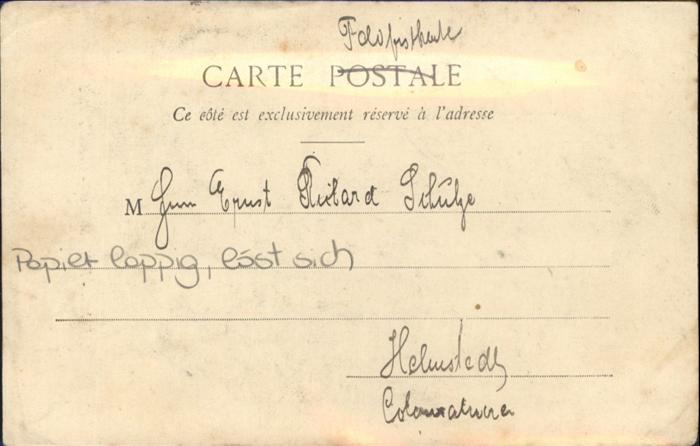 Feldpostkarte
CARTE POSTALE
Ce côté est exclusivement réservé à l'adresse
M Herrn Ernst Richard Schulze
Papier lappig, löst sich
Helmstedt